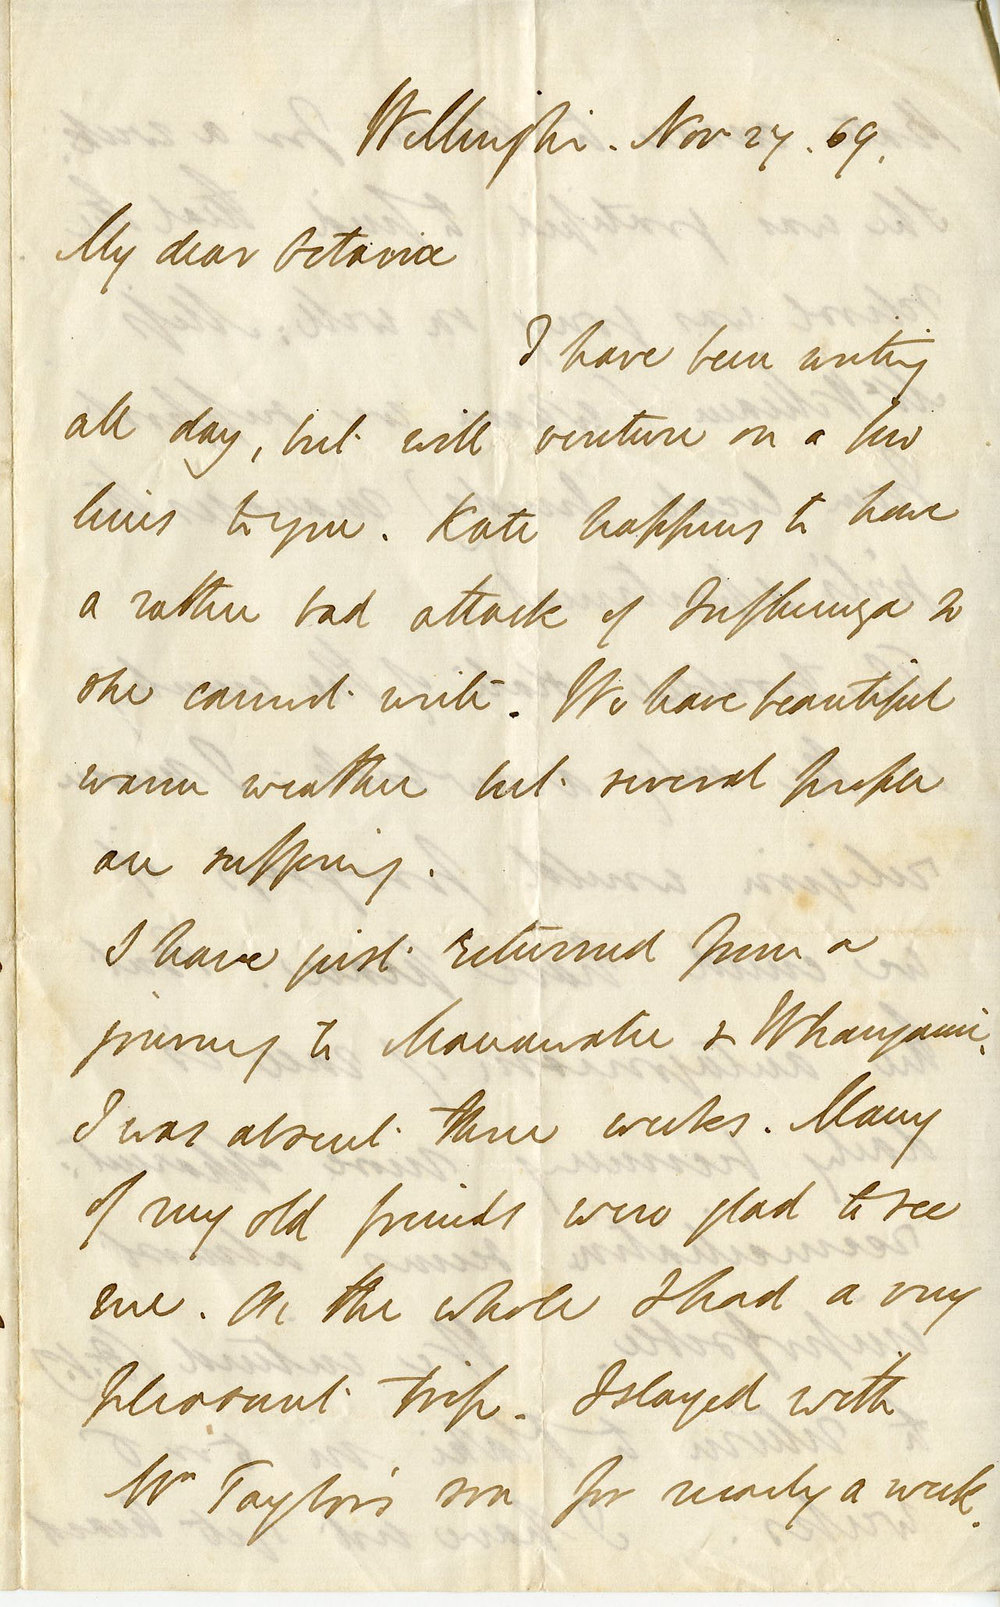 Wellington. Nov 27. 69.
My dear Octavia
I have been writing
all day, but will venture on a few
lines to you. Kate happens to have
a rather bad attack of Influenza so
she cannot write. We have beautiful
warm weather but several people
are suffering.
I have just returned from a
journey to Manawatu & Whanganui.
I was absent three weeks. Many
of my old friends were glad to see
me. On the whole I had a very
pleasant trip. I stayed with
Mr Taylor's son for nearly a week.